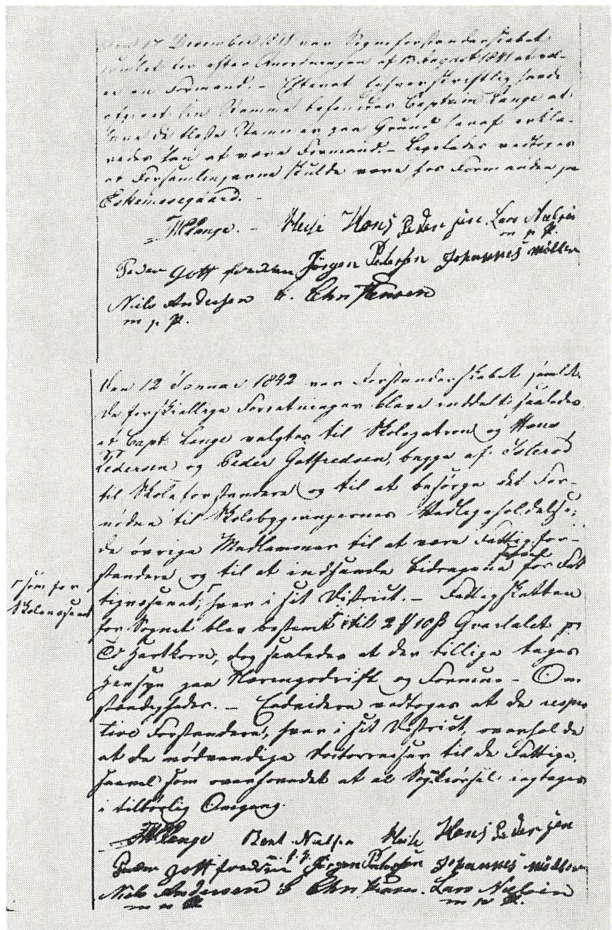 Den 17 December 1841 var Sogneforstanderskabet
samlet for efter Anordningen af 13 August 1841 at
en Formand. – Efterat enhver skriftlig havde
afgivet sin Stemme befandtes Captain Lange at
have de fleste Stemmer paa Grund heraf erklæ-
redes han at være Formand. – Ligeledes vedtoges
at Forsamlingerne skulde være hos Formanden paa
Eskemosegaard. –
Lange. – Heise Hans Pedersen. Lars
m. p. P.
Peder Gottfredsen Jörgen Petersen Johannes Möller
Niels Andersen Chr Hansen
m p P.
Den 12 Januar 1842 var Forstanderskabet samlet.
De forskiellige Forretninger bleve inddeelte saaledes
at Capt. Lange valgtes til Skolepatron og Hans
Pedersen og Peder Gotfredsen, begge af Isterød
til Skoleforstandere og til at besørge det For-
nødne til Skolebygningernes Vedligeholdelse;
de øvrige Medlemmer til at være Fattigfor-
standere og til at indsamle Bidragene for Fat
tigvæsenet, hver i sit District. – Fattigskatten
som for
Skolevæsenet
for Sognet blev bestemt til 2 10 Qvartalet pr
Td Hartkorn, dog saaledes at der tillige tages
Hensyn paa Næringsdrift og Formue-Om
stændigheder. – Endvidere vedtoges at de respec
tive Forstandere, hver i sit District, overholde
at de nødvendige til de Fattige,
saavel som overhovedet at al iagttages
i tilbørlig Omgang.
Lange Bent Nielsen Heise Hans Pedersen
Peder Gottfredsen Jörgen Petersen Johannes Möller
Niels Andersen Chr Hansen. Lars Nielsen